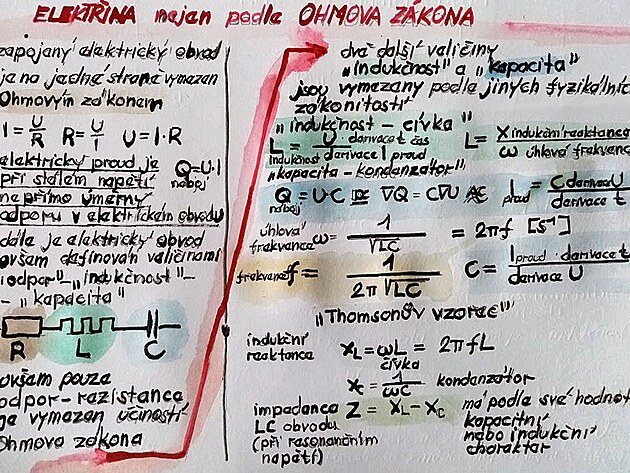 ELEKTŘINA nejen podle OHMOVA ZÁKONA
zapojený elektrický obvod
je na jedné straně vymezen
Ohmovým zákonem
I = U/R R = U/I U = I·R
elektrický proud je
při stálém napětí
nepřímo úměrný
odporu v elektrickém obvodu
Q = U·I
náboj
dále je elektrický obvod
ovšem definován veličinami
odpor" – „indukčnost" –
– „kapacita"
R L C
ovšem pouze
odpor-rezistance
je vymezen účinností
Ohmova zákona
dvě další veličiny
„indukčnost" a „kapacita"
jsou vymezeny podle jiných fyzikálních
zákonitostí
„indukčnost – cívka"
L = U derivace t čas / derivace I proud
indukčnost
L = X indukční reaktance / ω úhlová frekvence
„kapacita – kondenzátor"
Q = U·C ∇Q = C∇U
náboj
I = C derivace U / derivace t
proud
úhlová
frekvence ω = 1/√LC = 2πf [s⁻¹]
frekvence f = 1 / 2π√LC
C = I proud · derivace t / derivace U
„Thomsonův vzorec"
indukční
reaktance
X_L = ωL = 2πfL
cívka
X_C = 1/ωC kondenzátor
impedance
LC obvodu
(při rezonančním
napětí)
Z = X_L – X_C
má podle své hodnoty
kapacitní
nebo indukční
charakter